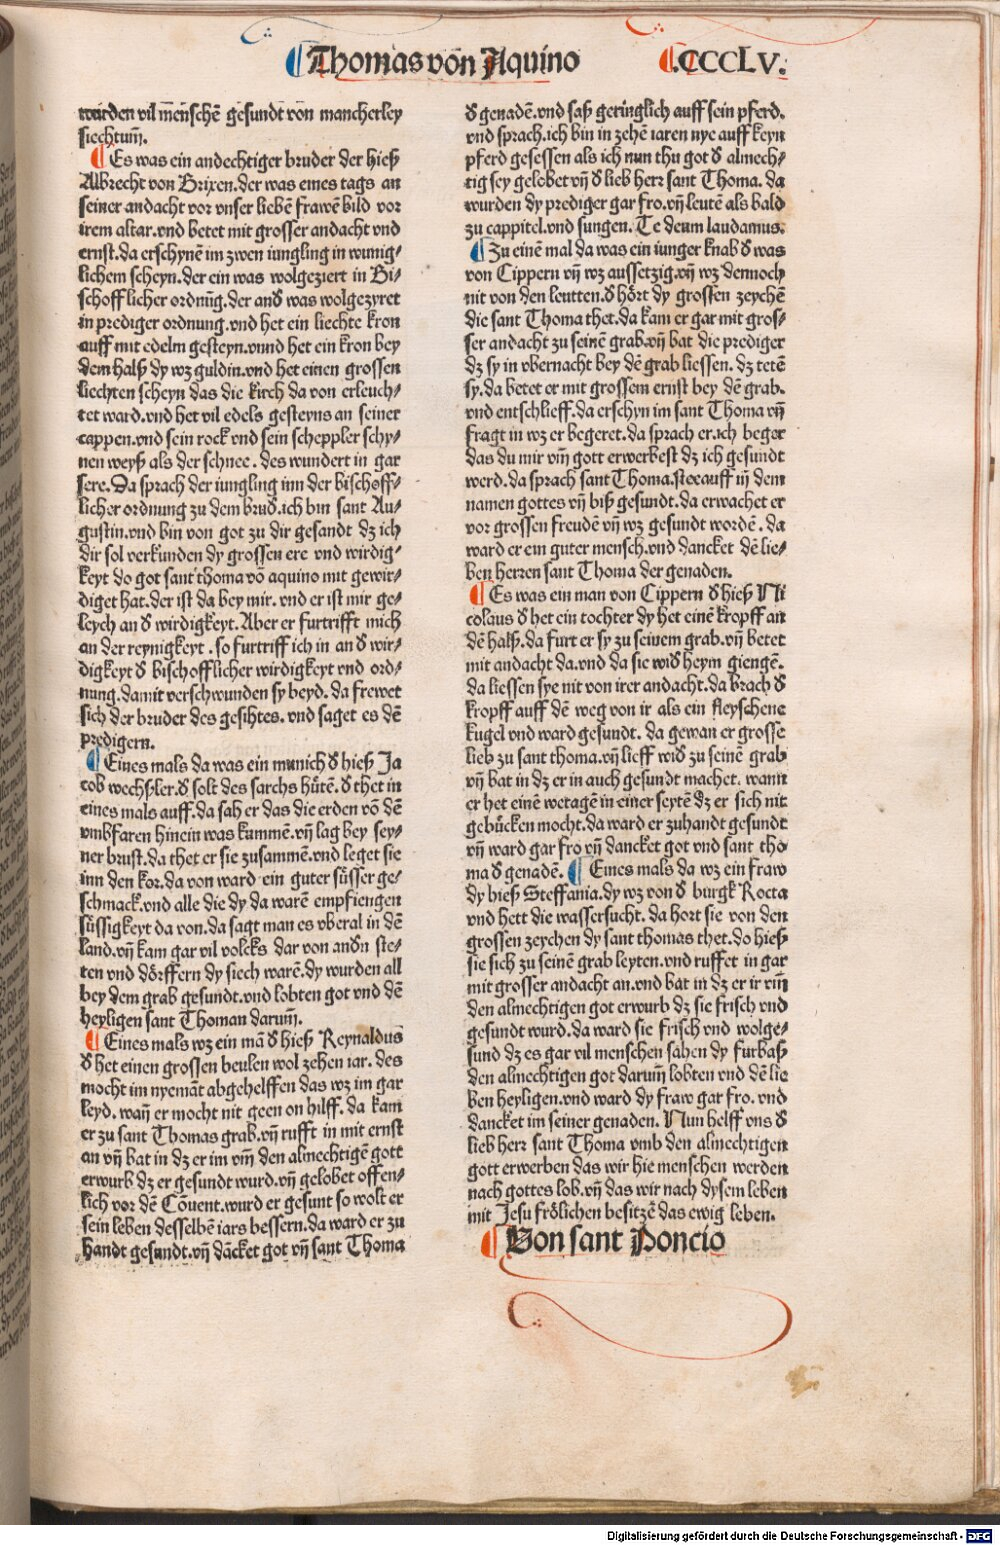 Thomas von Aquino .CCCLV.
wurden vil mēnschē gesundt von mancherley
siechtum̄.
Es was ein andechtiger bruder der hieß
Albrecht von Brixen.der was eines tags an
seiner andacht vor vnser liebē frawē bild vor
irem altar.vnd betet mit grosser andacht vnd
ernst.da erschynē im zwen iungling in wunig⸗
lichem scheyn.der ein was wolgeziert in Bi⸗
schofflicher ordnūg.der and̄ was wolgezyret
in prediger ordnung.vnd het ein liechte kron
auff mit edelm gesteyn.vnnd het ein kron bey
dem halß dy wz guldin.vnd het einen grossen
liechten scheyn das die kirch da von erleuch⸗
tet ward.vnd het vil edels gesteyns an seiner
cappen.vnd sein rock vnd sein scheppler schy⸗
nen weyß als der schnee. des wundert in gar
sere.Da sprach der iungling inn der bischoff⸗
licher ordnung zu dem brud̄.ich bin sant Au⸗
gustin.vnd bin von got zu dir gesandt dz ich
dir sol verkunden dy grossen ere vnd wirdig⸗
keyt do got sant thoma vō aquino mit gewir⸗
diget hat.der ist da bey mir. vnd er ist mir ge⸗
leych an d̄ wirdigkeyt.Aber er furtrifft mich
an der reynigkeyt .so furtriff ich in an d̄ wir⸗
digkeyt d̄ bischofflicher wirdigkeyt vnd ord⸗
nung.damit verschwunden sy beyd.da frewet
sich der bruder des gesihtes. vnd saget es dē
predigern.
Eines mals da was ein munich d̄ hieß Ja
cob wechßler.d̄ solt des sarchs hütē.d̄ thet in
eines mals auff.da sah er das die erden vō dē
vmbfaren hinein was kummē.vn̄ lag bey sey⸗
ner brust.da thet er sie zusammē.vnd leget sie
inn den kor.da von ward ein guter süsser ge⸗
schmack.vnd alle die dy da warē empfiengen
süssigkeyt da von.da sagt man es vberal in dē
land.vn̄ kam gar vil volcks dar von and̄n ste⸗
ten vnd dörffern dy siech warē.dy wurden all
bey dem grab gesundt.vnd lobten got vnd dē
heyligen sant Thoman darum̄.
Eines mals wz ein mā d̄ hieß Reynaldus
d̄ het einen grossen beulen wol zehen iar. des
mocht im nyemāt abgehelffen das wz im gar
leyd. wan̄ er mocht nit geen on hilff. da kam
er zu sant Thomas grab.vn̄ rufft in mit ernst
an vn̄ bat in dz er im vm̄ den almechtigē gott
erwurb dz er gesundt wurd.vn̄ gelobet offen⸗
lich vor dē Cōuent.wurd er gesunt so wolt er
sein leben desselbē iars bessern.da ward er zu
handt gesundt.vn̄ dācket got vn̄ sant Thoma
d̄ genadē.vnd saß geringlich auff sein pferd.
vnd sprach.ich bin in zehē iaren nye auff keyn
pferd gesessen als ich nun thu got d̄ almech⸗
tig sey gelobet vn̄ d̄ lieb herr sant Thoma. da
wurden dy prediger gar fro.vn̄ leutē als bald
zu cappitel.vnd sungen. Te deum laudamus.
Zu einē mal da was ein iunger knab d̄ was
von Cippern vn̄ wz aussetzig.vn̄ wz dennoch
nit von den leutten.d̄ hört dy grossen zeychē
die sant Thoma thet.da kam er gar mit gros⸗
ser andacht zu seinē grab.vn̄ bat die prediger
dz sy in vbernacht bey dē grab liessen. dz tetē
sy.da betet er mit grossem ernst bey dē grab.
vnd entschlieff.da erschyn im sant Thoma vn̄
fragt in wz er begeret.da sprach er.ich beger
das du mir vm̄ gott erwerbest dz ich gesundt
werd.da sprach sant Thoma.stee auff in̄ dem
namen gottes vn̄ biß gesundt.da erwachet er
vor grossen freudē vn̄ wz gesundt wordē. da
ward er ein guter mensch.vnd dancket dē lie⸗
ben herren sant Thoma der genaden.
Es was ein man von Cippern d̄ hieß Ni
colaus d̄ het ein tochter dy het einē kropff an
dē halß.da furt er sy zu seinem grab.vn̄ betet
mit andacht da.vnd da sie wid̄ heym giengē.
da liessen sye nit von irer andacht.da brach d̄
kropff auff dē weg von ir als ein fleyschene
kugel vnd ward gesundt. da gewan er grosse
lieb zu sant thoma.vn̄ lieff wid̄ zu seinē grab
vn̄ bat in dz er in auch gesundt machet. wann
er het einē wetagē in einer seytē dz er sich nit
gebücken mocht.da ward er zuhandt gesundt
vn̄ ward gar fro vn̄ dancket got vnd sant tho
ma d̄ genadē. Eines mals da wz ein fraw
dy hieß Steffania.dy wz von d̄ burgk Rocta
vnd hett die wassersucht. da hort sie von den
grossen zeychen dy sant thomas thet.do hieß
sie sich zu seinē grab leyten.vnd ruffet in gar
mit grosser andacht an.vnd bat in dz er ir vm̄
den almechtigen got erwurb dz sie frisch vnd
gesundt wurd.da ward sie frisch vnd wolge⸗
sund dz es gar vil menschen sahen dy furbaß
den almechtigen got darum̄ lobten vnd dē lie
ben heyligen.vnd ward dy fraw gar fro. vnd
dancket im seiner genaden. Nun helff vns d̄
lieb herr sant Thoma vmb den almechtigen
gott erwerben das wir hie menschen werden
nach gottes lob.vn̄ das wir nach dysem leben
mit Jesu frölichen besitzē das ewig leben.
Von sant Poncio
Digitalisierung gefördert durch die Deutsche Forschungsgemeinschaft - DFG